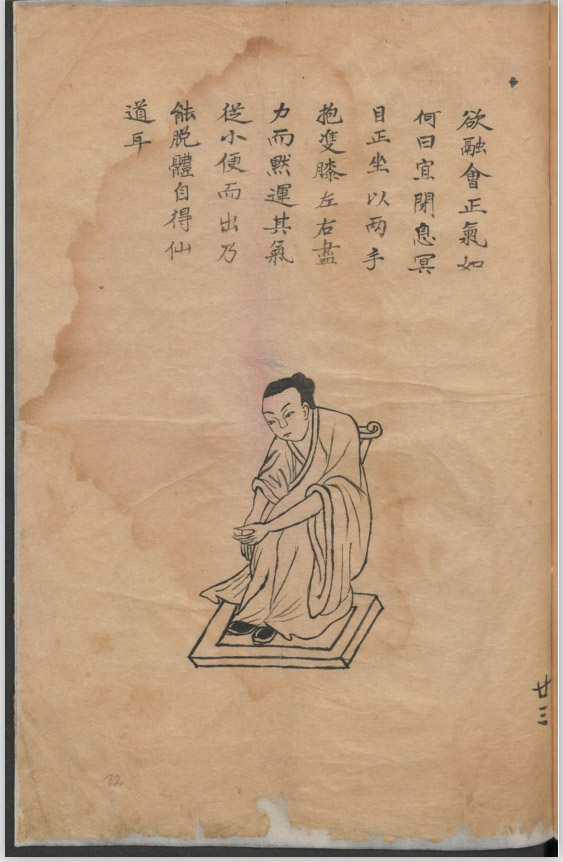 欲融會正氣如
何曰宜閉息冥
目正坐以两手
抱雙膝左右盡
力而默運其氣
從小便而出乃
能脱體自得仙
道耳
廿三
12